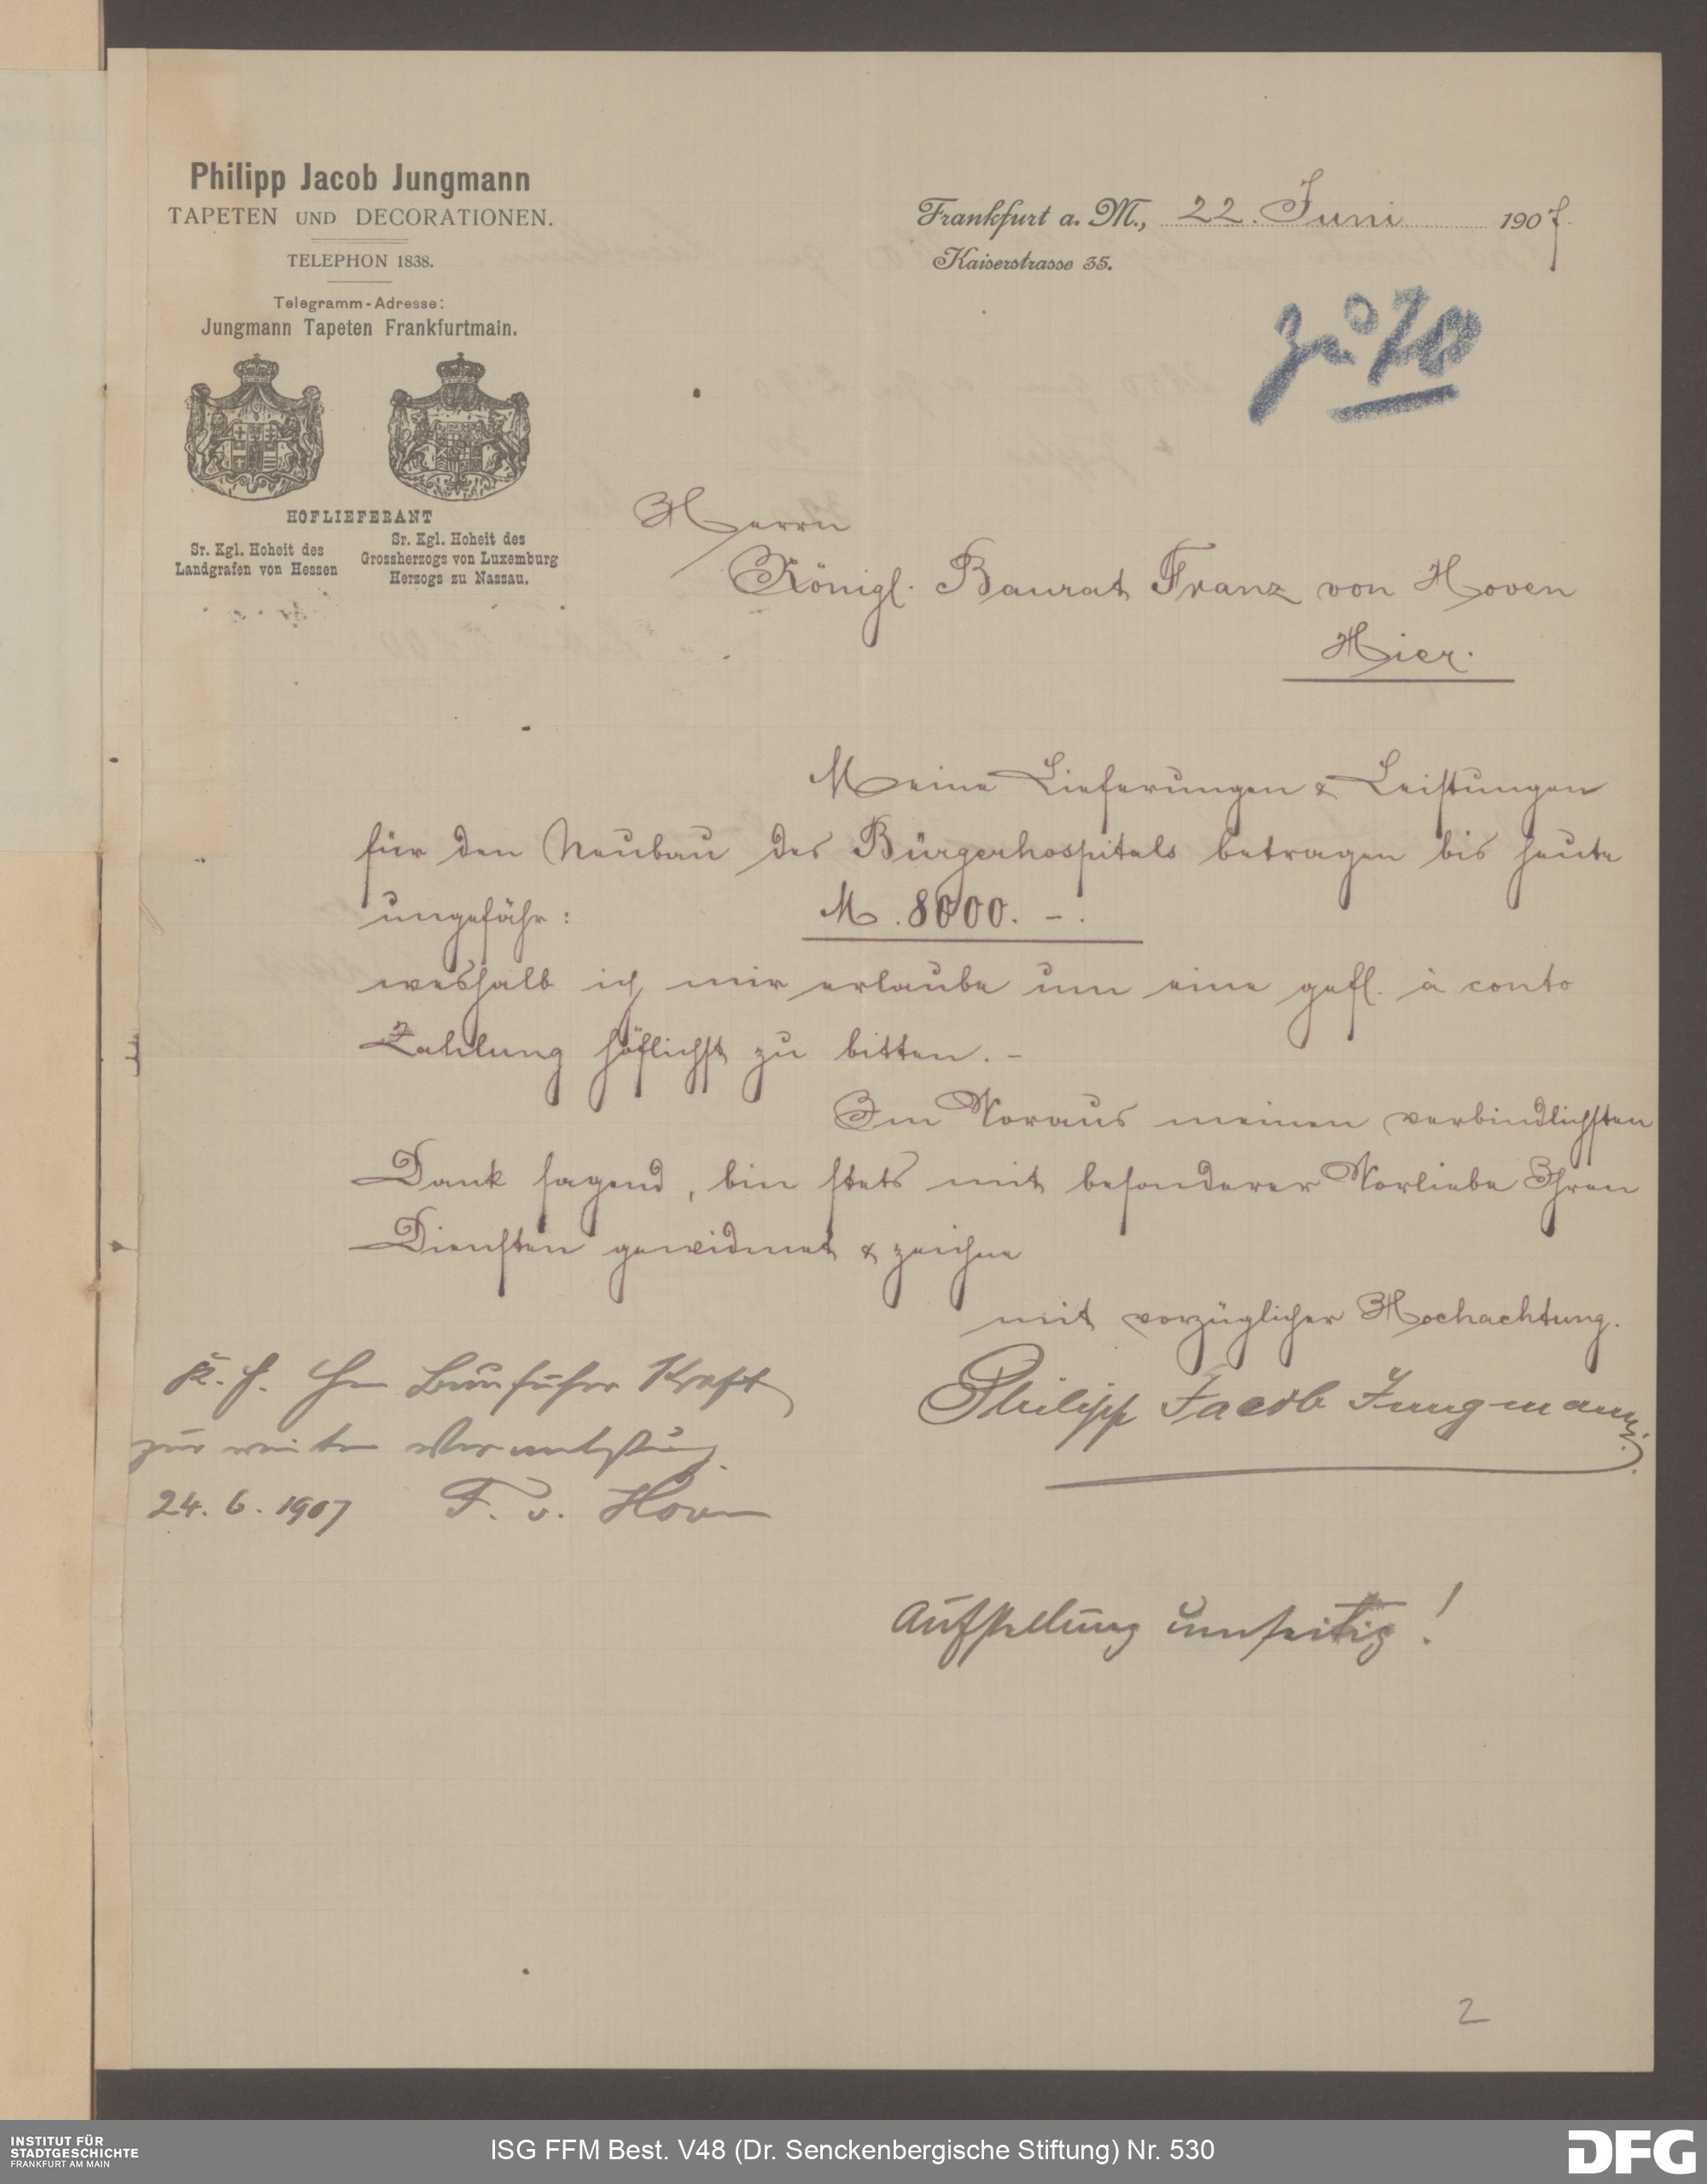 Philipp Jacob Jungmann
TAPETEN UND DECORATIONEN.
TELEPHON 1838.
Telegramm-Adresse:
Jungmann Tapeten Frankfurtmain.
HOFLIEFERANT
Sr. Kgl. Hoheit des
Landgrafen von Hessen
Sr. Kgl. Hoheit des
Grossherzogs von Luxemburg
Herzogs zu Nassau.
Frankfurt a. M., 22. Juni 1907.
Kaiserstrasse 35.
zu 70
Herrn
Königl. Baurat Franz von Hoven
Hier.
Meine Lieferungen & Leistungen
für den Neubau des Bürgerhospitals betragen bis heute
ungefähr: M. 8000. -.
weshalb ich mir erlaube um eine gefl. à conto
Zahlung höflichst zu bitten. -
Im Voraus meinen verbindlichsten
Dank sagend, bin stets mit besonderer Vorliebe Ihren
Diensten gewidmet & zeichne
mit vorzüglicher Hochachtung.
Philipp Jacob Jungmann.
Bauführer Kraft
zur weiteren Veranlassung.
24. 6. 1907 F. v. Hoven
Aufstellung umseitig!
2
INSTITUT FÜR
STADTGESCHICHTE
FRANKFURT AM MAIN
ISG FFM Best. V48 (Dr. Senckenbergische Stiftung) Nr. 530
DFG